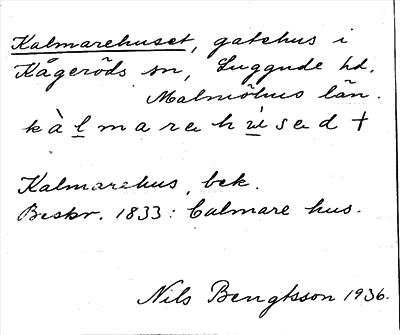 Kalmarehuset, gatehus i
Kågeröds sn, Luggude hd,
Malmöhus län.
kàlmarehùsed †
Kalmarehus, bek.
Beskr. 1833: Calmare hus.
Nils Bengtsson 1936.